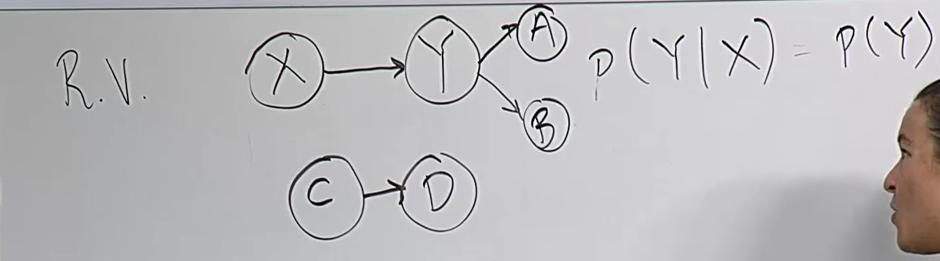 R.V. X Y A P(Y|X) = P(Y)
B
C D